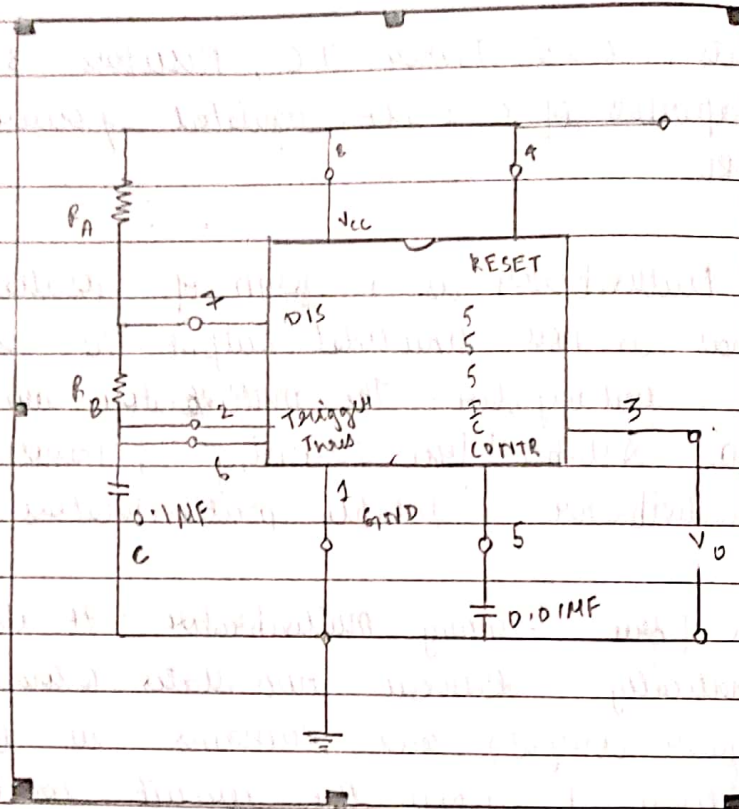 8 4
R_A
Vcc
RESET
7
DIS
5
5
5
I
C
R_B
2
Trigger
3
Thres
CONTR
6
1
0.1MF
GND
5
C
V_0
0.01MF